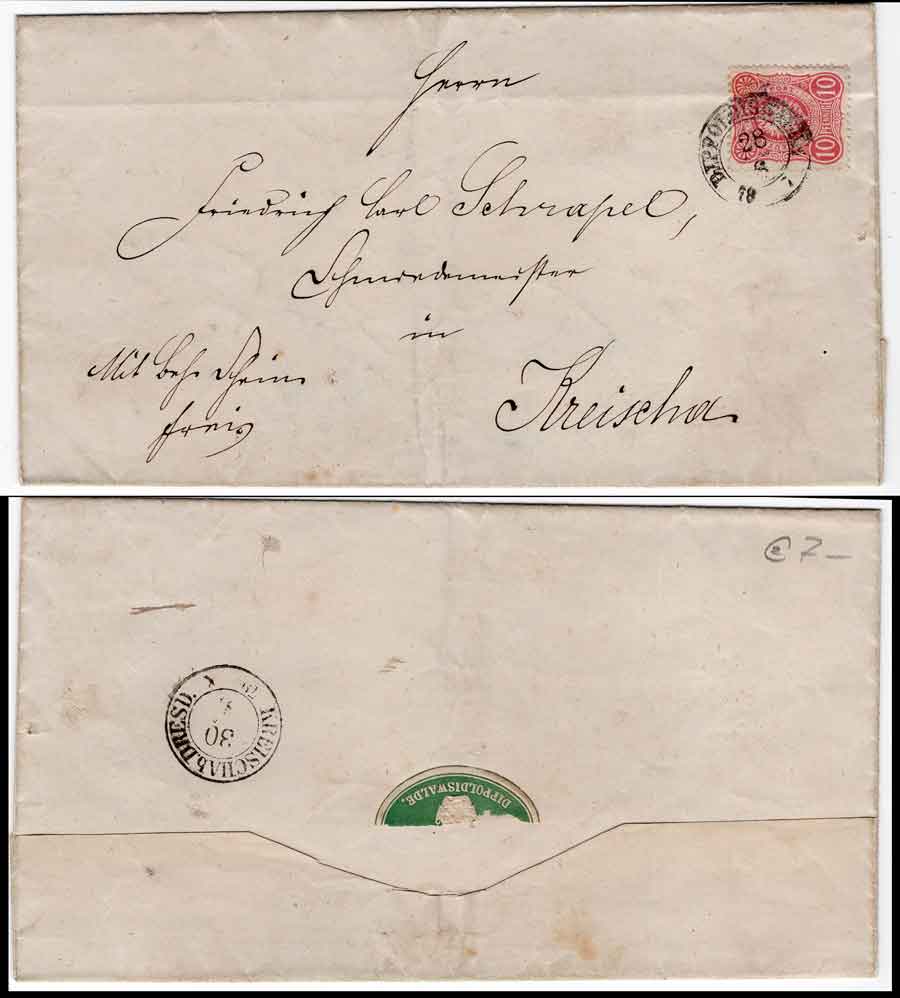 Herrn
Friedrich Carl Schrapel,
Schmiedemeister
in
Kreischa.
Mit Beh. Schein
frei
10
10
DIPPOLDISWALDE
28
78
€ 7 —
KREISCHA b. DRESD.
30
DIPPOLDISWALDE.